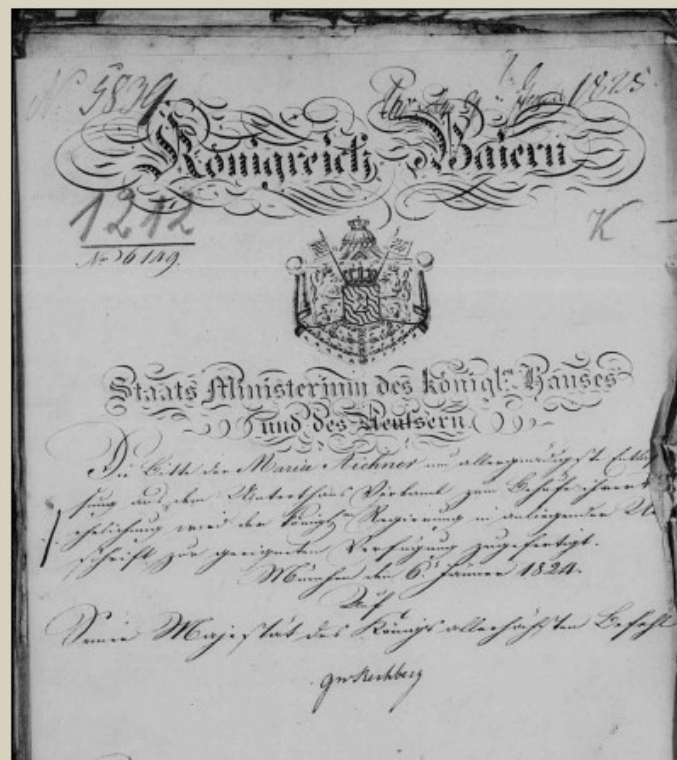 No 5839
1825
Königreich Baiern
1212
K
No 6149.
Staats Ministerium des Königl:en Hauses
und des Aeussern.
Die Bitte der Maria Aichner um allergnädigste Entlas-
sung aus dem Unterthans Verband zum Behufe ihrer
ehelichung wird der Königl:en Regierung in anliegender
schrift zur geeigneten Verfügung zugefertigt.
München den 6. Jänner 1824.
Auf
Seiner Majestät des Königs allerhöchsten Befehl
Rechberg